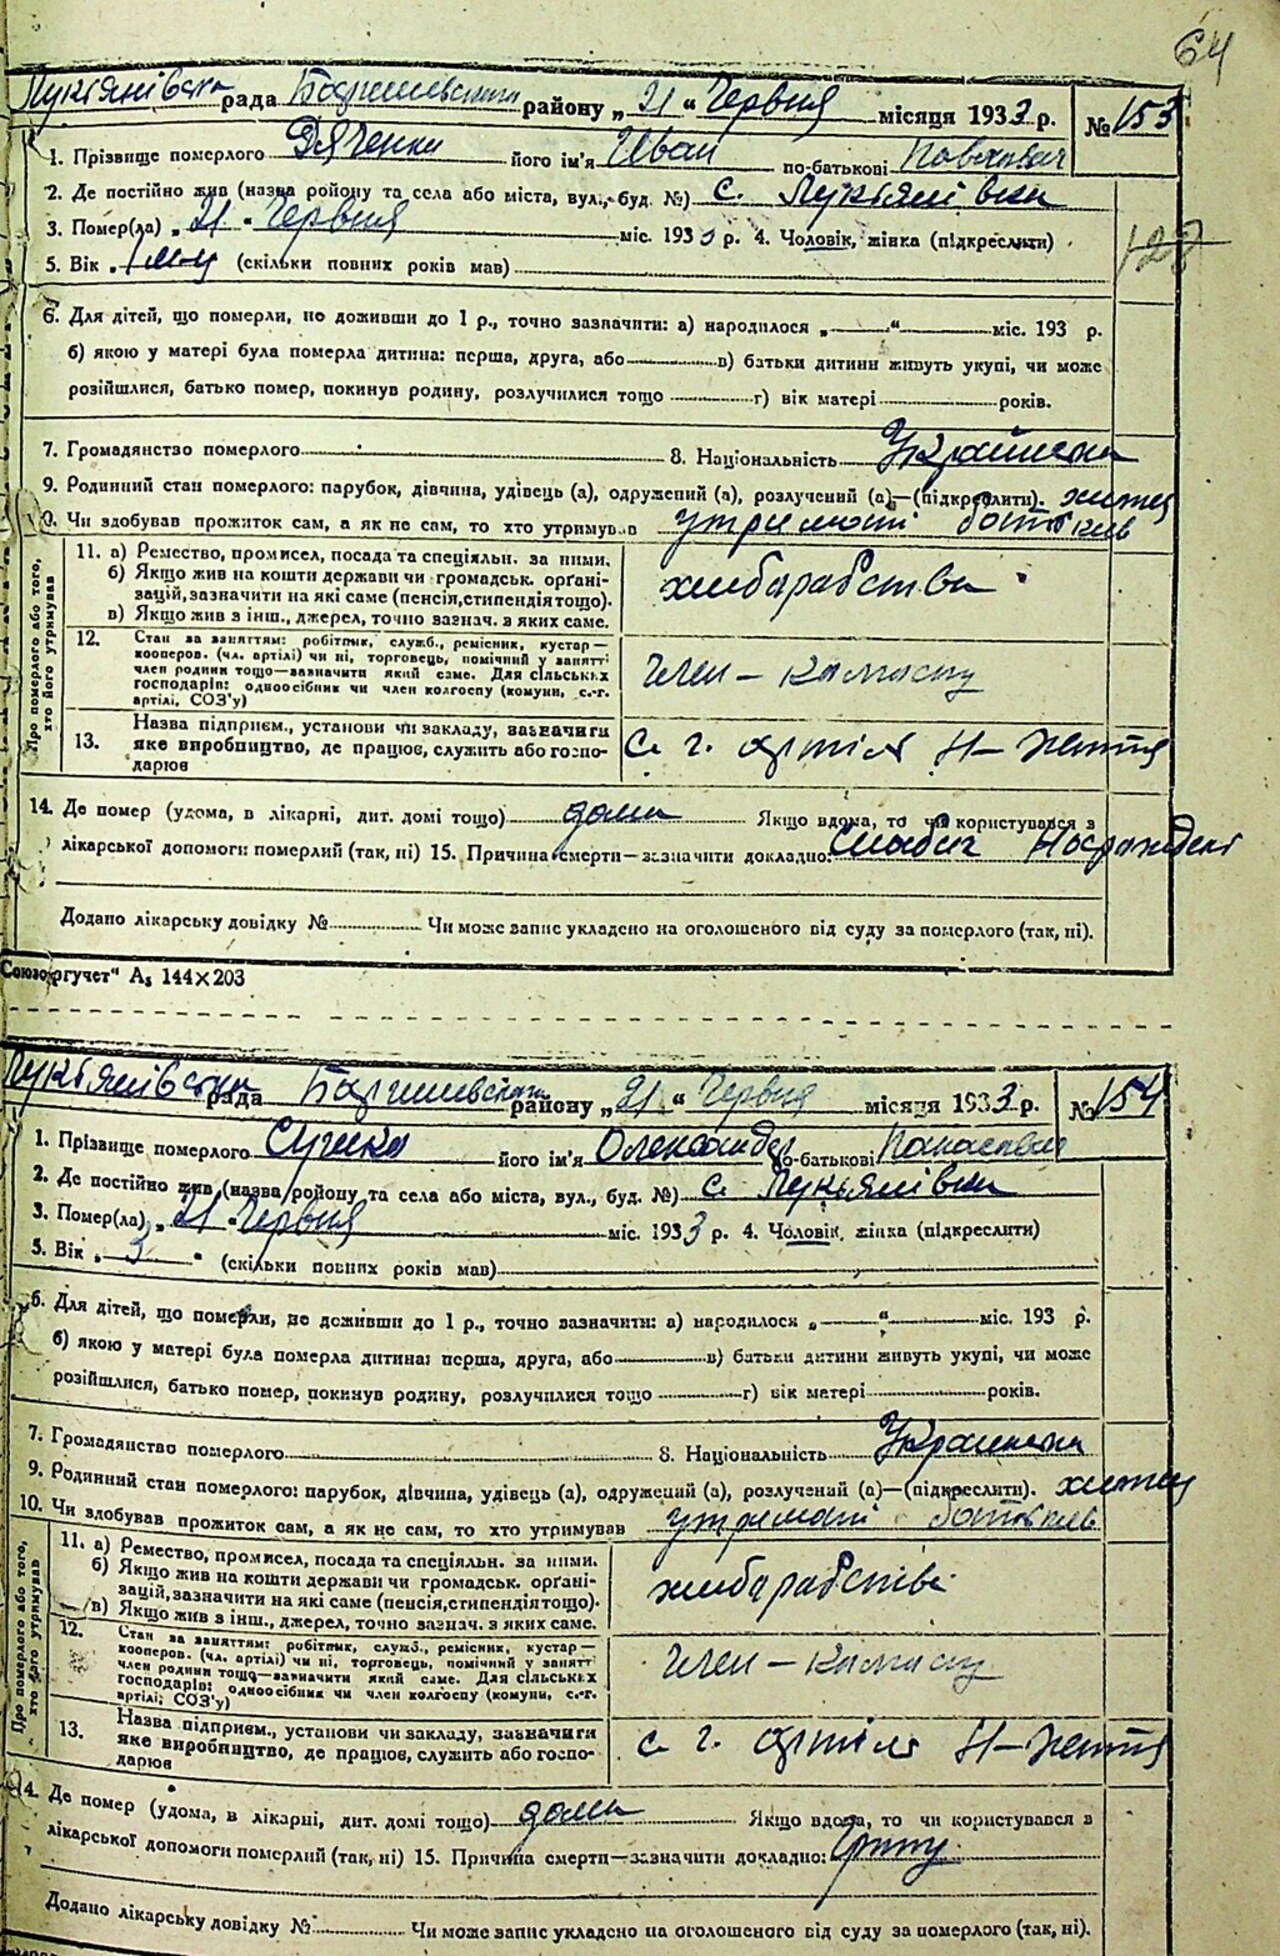 64
Лукʼянівська рада Баришевського району „21“ Червня місяця 1933 р. № 153
1. Прізвище померлого Дяченко його ім'я Іван по-батькові Павлович
2. Де постійно жив (назва ройону та села або міста, вул., буд. №) с. Лукʼянівки
3. Помер(ла) „21“ Червня міс. 1933 р. 4. Чоловік, жінка (підкреслити)
5. Вік „ “ (скільки повних років мав)
6. Для дітей, що померли, не доживши до 1 р., точно зазначити: а) народилося „—“ міс. 193 р.
б) якою у матері була померла дитина: перша, друга, або — в) батьки дитини живуть укупі, чи може
розійшлися, батько помер, покинув родину, розлучилися тощо — г) вік матері — років.
7. Громадянство померлого 8. Національність Українець
9. Родинний стан померлого: парубок, дівчина, удівець (а), одружений (а), розлучений (а)—(підкреслити).
10. Чи здобував прожиток сам, а як не сам, то хто утримував утриманні батьків
Про померлого або того, хто його утримував
11. а) Ремество, промисел, посада та спеціяльн. за ними.
б) Якщо жив на кошти держави чи громадськ. орґані-
зацій, зазначити на які саме (пенсія, стипендія тощо).
в) Якщо жив з інш., джерел, точно зазнач. з яких саме.
хліборобство
12. Стан за заняттям: робітник, служб., ремісник, кустар—
кооперов. (чл. артілі) чи ні, торговець, помічний у занятті
член родини тощо—зазначити який саме. Для сільських
господарів: одноосібник чи член колгоспу (комуни, с.-г.
артілі, СОЗ'у)
член – колгоспу
13. Назва підприєм., установи чи закладу, зазначити
яке виробництво, де працює, служить або госпо-
дарює
с. г. артіль Н–Життя
14. Де помер (удома, в лікарні, дит. домі тощо) дома Якщо вдома, то чи користувався з
лікарської допомоги померлий (так, ні) 15. Причина смерти—зазначити докладно:
Додано лікарську довідку № Чи може запис укладено на оголошеного від суду за померлого (так, ні).
Союзоргучет" А₅ 144×203
Лукʼянівська рада Баришевського району „21“ Червня місяця 1933 р. № 154
1. Прізвище померлого його ім'я Олександр по-батькові Панасович
2. Де постійно жив (назва ройону та села або міста, вул., буд. №) с. Лукʼянівки
3. Помер(ла) „21“ Червня міс. 1933 р. 4. Чоловік, жінка (підкреслити)
5. Вік „3“ (скільки повних років мав)
6. Для дітей, що померли, не доживши до 1 р., точно зазначити: а) народилося „—“ міс. 193 р.
б) якою у матері була померла дитина: перша, друга, або — в) батьки дитини живуть укупі, чи може
розійшлися, батько помер, покинув родину, розлучилися тощо — г) вік матері — років.
7. Громадянство померлого 8. Національність Українець
9. Родинний стан померлого: парубок, дівчина, удівець (а), одружений (а), розлучений (а)—(підкреслити).
10. Чи здобував прожиток сам, а як не сам, то хто утримував утриманні батьків
Про померлого або того, хто його утримував
11. а) Ремество, промисел, посада та спеціяльн. за ними.
б) Якщо жив на кошти держави чи громадськ. орґані-
зацій, зазначити на які саме (пенсія, стипендія тощо).
в) Якщо жив з інш., джерел, точно зазнач. з яких саме.
хліборобство
12. Стан за заняттям: робітник, служб., ремісник, кустар—
кооперов. (чл. артілі) чи ні, торговець, помічний у занятті
член родини тощо—зазначити який саме. Для сільських
господарів: одноосібник чи член колгоспу (комуни, с.-г.
артілі, СОЗ'у)
член – колгоспу
13. Назва підприєм., установи чи закладу, зазначити
яке виробництво, де працює, служить або госпо-
дарює
с. г. артіль Н–Життя
14. Де помер (удома, в лікарні, дит. домі тощо) дома Якщо вдома, то чи користувався з
лікарської допомоги померлий (так, ні) 15. Причина смерти—зазначити докладно:
Додано лікарську довідку № Чи може запис укладено на оголошеного від суду за померлого (так, ні).